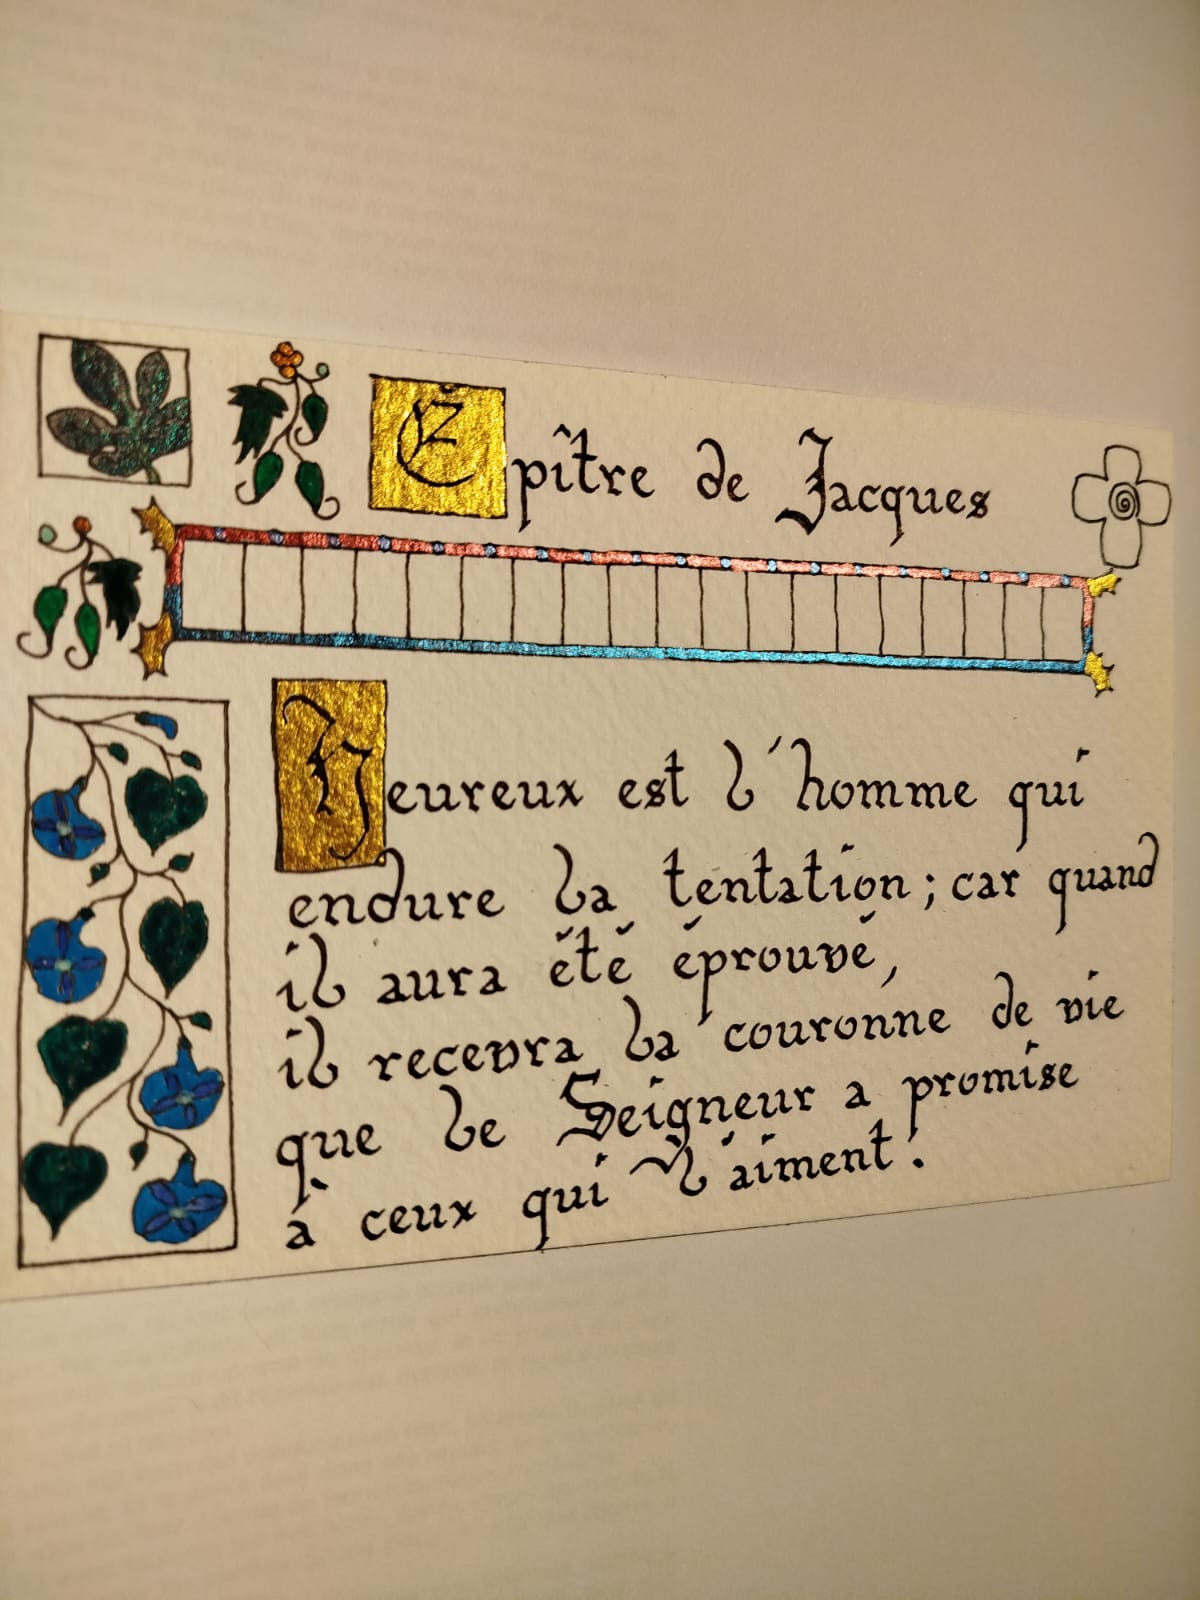 Épître de Jacques
Heureux est l'homme qui
endure la tentation ; car quand
il aura été éprouvé,
il recevra la couronne de vie
que le Seigneur a promise
à ceux qui L'aiment.